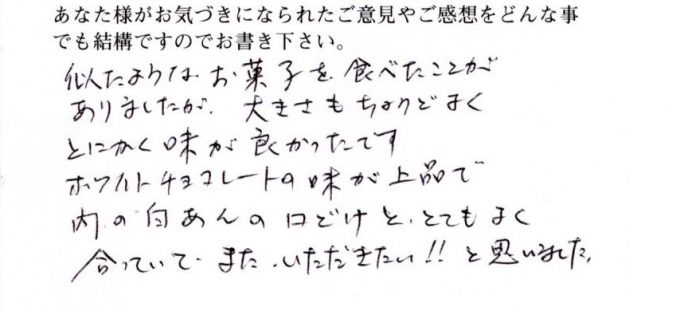 あなた様がお気づきになられたご意見やご感想をどんな事
でも結構ですのでお書き下さい。
似たようなお菓子を食べたことが
ありましたが、大きさもちょうどよく
とにかく味が良かったです
ホワイトチョコレートの味が上品で
内の白あんの口どけと、とてもよく
合っていて、また、いただきたい!!と思いました。